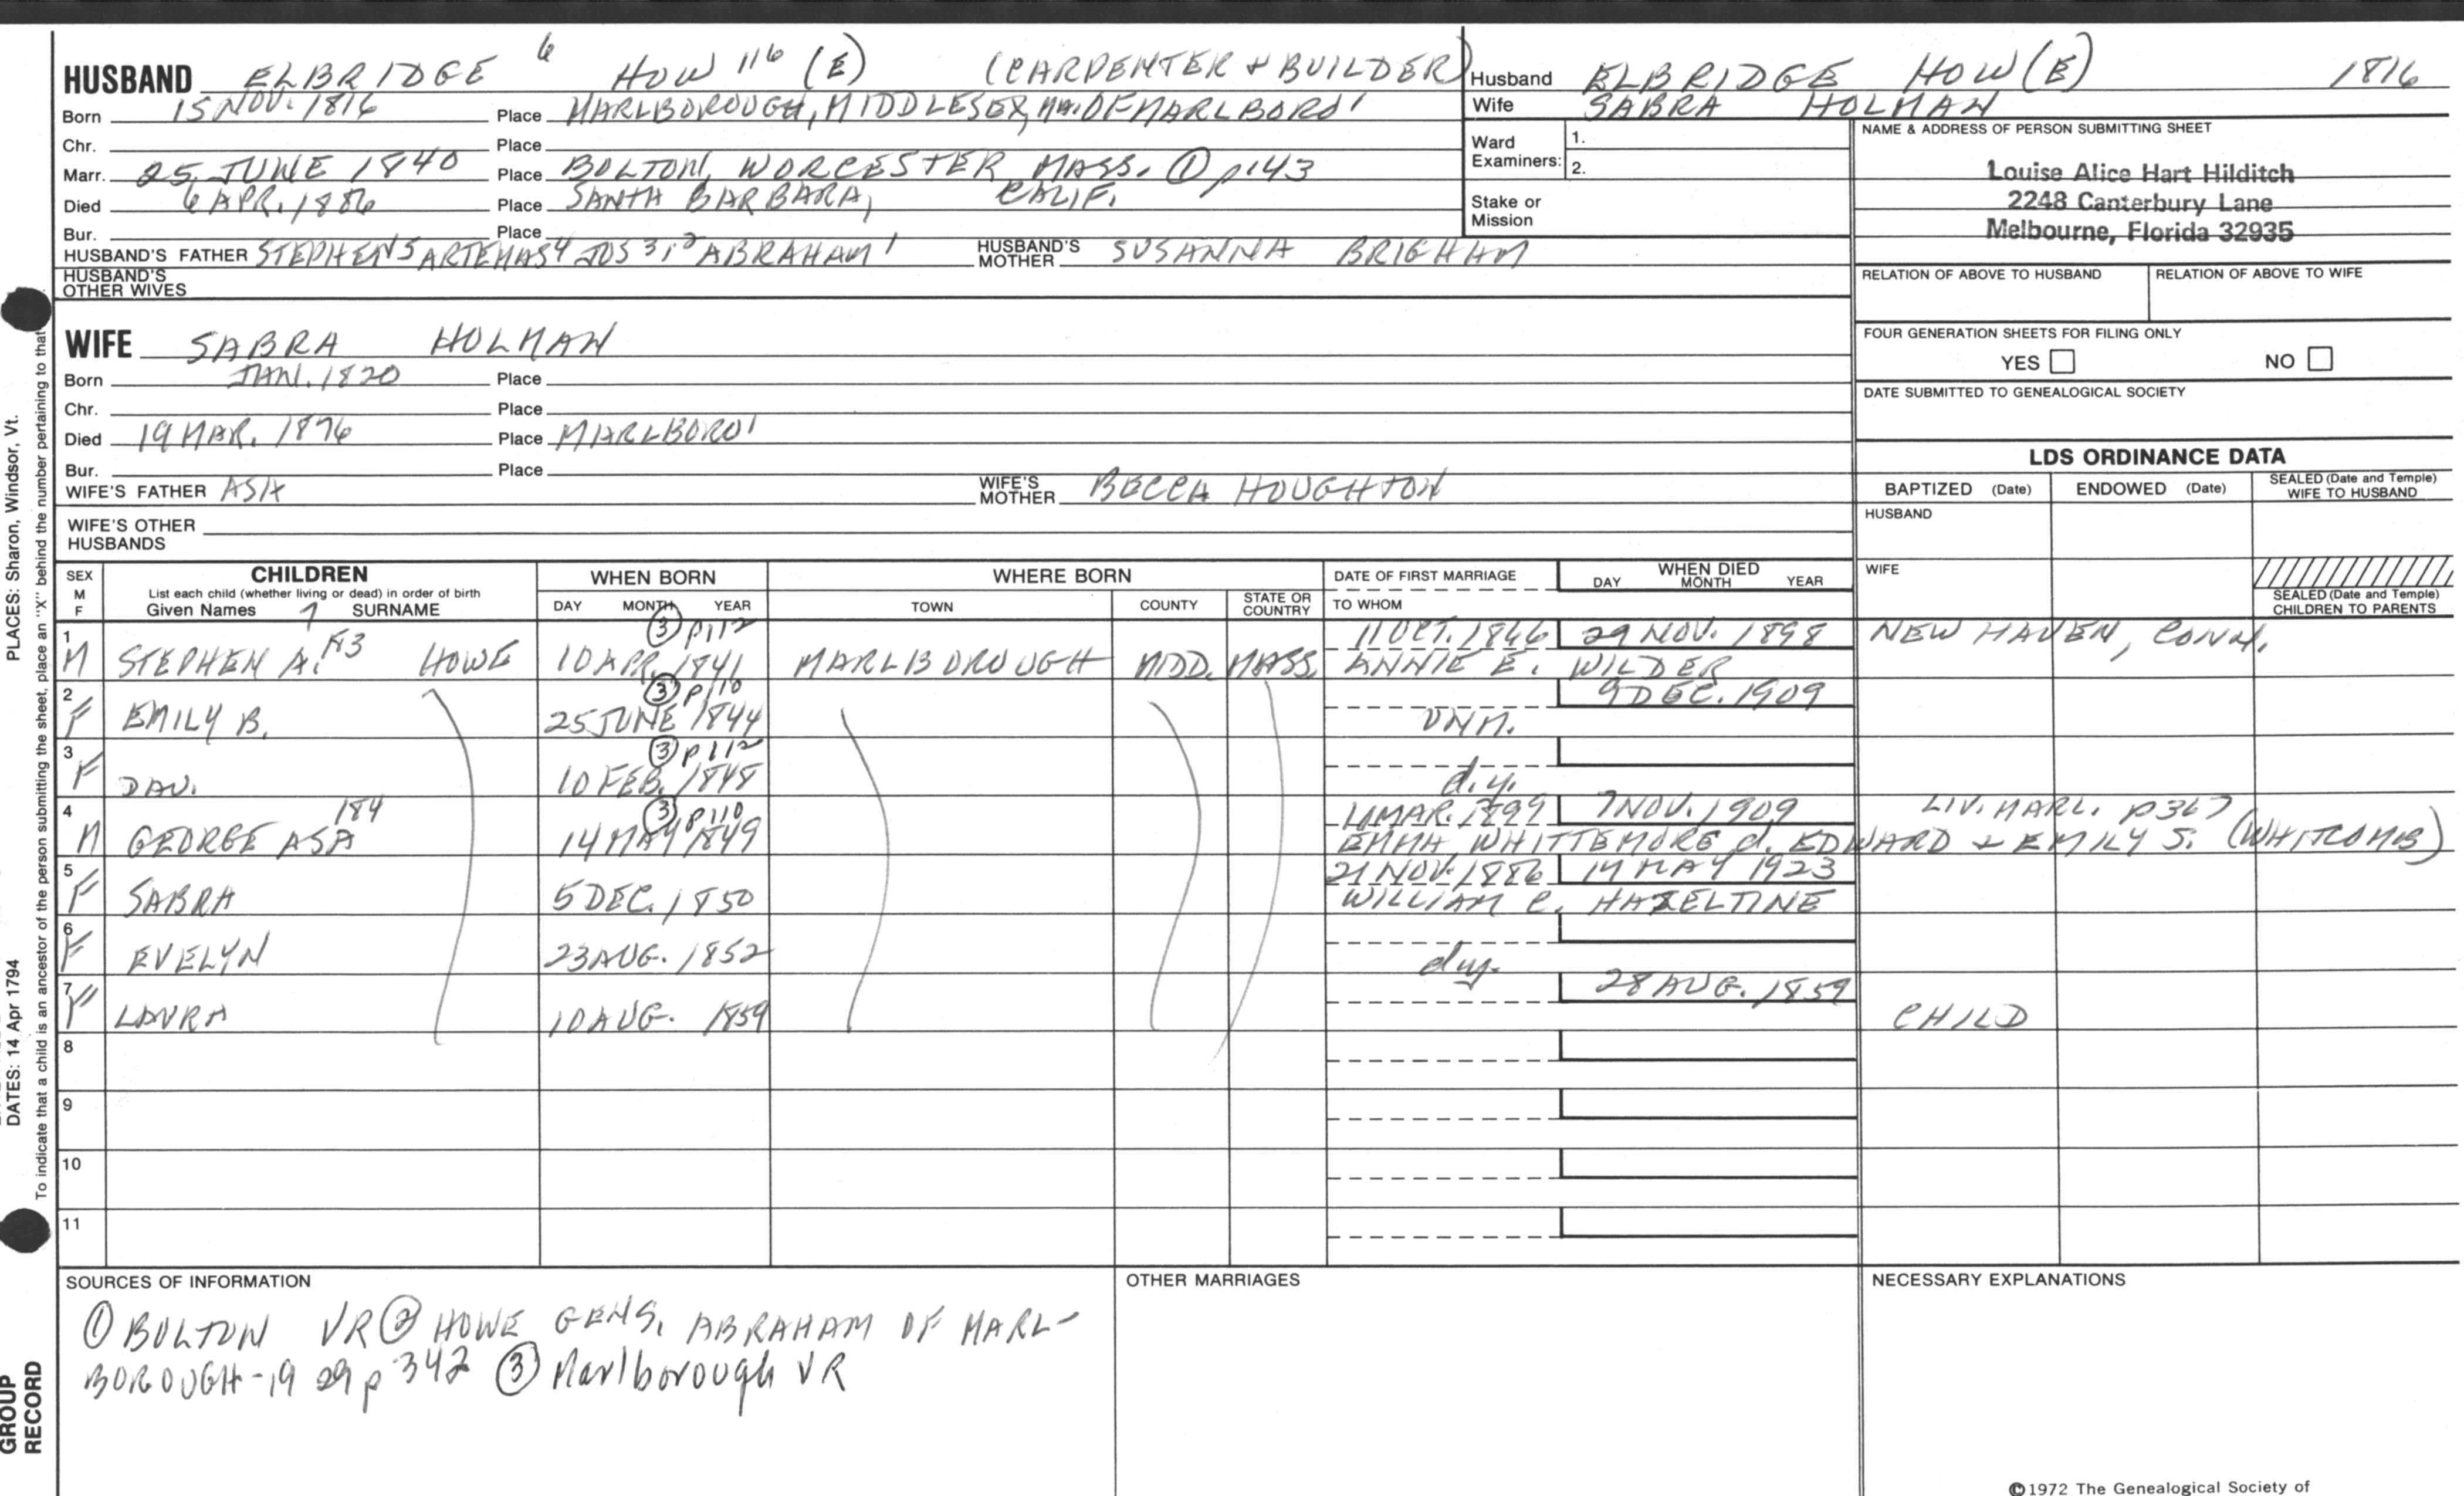 HUSBAND ELBRIDGE 6 HOW 116 (E) (CARPENTER & BUILDER)
Born 15 NOV. 1816 Place MARLBOROUGH, MIDDLESEX, MA. OF MARLBORO'
Chr. Place
Marr. 25 JUNE 1840 Place BOLTON, WORCESTER MASS. ① p143
Died 6 APR. 1886 Place SANTA BARBARA, CALIF.
Bur. Place
HUSBAND'S FATHER STEPHEN 5 ARTEMAS 4 JOS 3,2 ABRAHAM 1 HUSBAND'S MOTHER SUSANNA BRIGHAM
HUSBAND'S OTHER WIVES
Husband ELBRIDGE HOW (E) 1816
Wife SABRA HOLMAN
Ward Examiners: 1.
2.
Stake or Mission
NAME & ADDRESS OF PERSON SUBMITTING SHEET
Louise Alice Hart Hilditch
2248 Canterbury Lane
Melbourne, Florida 32935
RELATION OF ABOVE TO HUSBAND RELATION OF ABOVE TO WIFE
FOUR GENERATION SHEETS FOR FILING ONLY
YES NO
DATE SUBMITTED TO GENEALOGICAL SOCIETY
WIFE SABRA HOLMAN
Born JAN. 1820 Place
Chr. Place
Died 19 MAR. 1876 Place MARLBORO'
Bur. Place
WIFE'S FATHER ASA WIFE'S MOTHER BECCA HOUGHTON
WIFE'S OTHER HUSBANDS
LDS ORDINANCE DATA
BAPTIZED (Date) ENDOWED (Date) SEALED (Date and Temple) WIFE TO HUSBAND
HUSBAND
WIFE
SEALED (Date and Temple) CHILDREN TO PARENTS
SEX M F CHILDREN List each child (whether living or dead) in order of birth Given Names 7 SURNAME
WHEN BORN DAY MONTH YEAR
WHERE BORN TOWN COUNTY STATE OR COUNTRY
DATE OF FIRST MARRIAGE TO WHOM
WHEN DIED DAY MONTH YEAR
③ p112 11 OCT. 1866 29 NOV. 1898 NEW HAVEN, CONN.
1 M STEPHEN A. HOWE 10 APR. 1841 MARLBOROUGH MIDD. MASS. ANNIE E. WILDER
③ p110 9 DEC. 1909
2 F EMILY B. 25 JUNE 1844 UNM.
③ p112
3 F DAU. 10 FEB. 1848 d.y.
184 ③ p110 MAR. 1899 7 NOV. 1909 LIV. MARL. p367
4 M GEORGE ASA 14 MAY 1849 EMMA WHITTEMORE d. EDWARD & EMILY S. (WHITCOMB)
21 NOV. 1886 14 MAY 1923
5 F SABRA 5 DEC. 1850 WILLIAM C. HAZELTINE
6 F EVELYN 23 AUG. 1852 d.y.
28 AUG. 1859
7 F LAURA 10 AUG. 1859 CHILD
8
9
10
11
SOURCES OF INFORMATION
① BOLTON VR ② HOWE GENS. ABRAHAM OF MARL-
BOROUGH-1929 p 342 ③ Marlborough VR
OTHER MARRIAGES
NECESSARY EXPLANATIONS
©1972 The Genealogical Society of
PLACES: Sharon, Windsor, Vt.
DATES: 14 Apr 1794
To indicate that a child is an ancestor of the person submitting the sheet, place an "X" behind the number pertaining to that
GROUP
RECORD